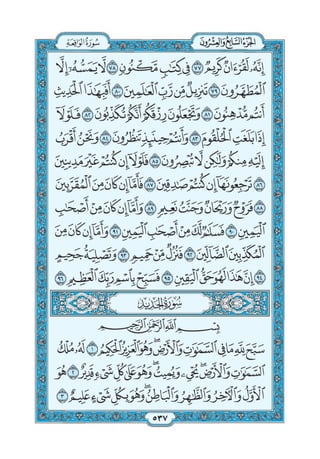 الجزء السابع والعشرون سورة الواقعة
إِنَّهُۥ لَقُرْءَانٌ كَرِيمٌ ٧٧ فِى كِتَـٰبٍ مَّكْنُونٍ ٧٨ لَّا يَمَسُّهُۥٓ إِلَّا
ٱلْمُطَهَّرُونَ ٧٩ تَنزِيلٌ مِّن رَّبِّ ٱلْعَـٰلَمِينَ ٨٠ أَفَبِهَـٰذَا ٱلْحَدِيثِ
أَنتُم مُّدْهِنُونَ ٨١ وَتَجْعَلُونَ رِزْقَكُمْ أَنَّكُمْ تُكَذِّبُونَ ٨٢ فَلَوْلَآ
إِذَا بَلَغَتِ ٱلْحُلْقُومَ ٨٣ وَأَنتُمْ حِينَئِذٍ تَنظُرُونَ ٨٤ وَنَحْنُ أَقْرَبُ
إِلَيْهِ مِنكُمْ وَلَـٰكِن لَّا تُبْصِرُونَ ٨٥ فَلَوْلَآ إِن كُنتُمْ غَيْرَ مَدِينِينَ
٨٦ تَرْجِعُونَهَآ إِن كُنتُمْ صَـٰدِقِينَ ٨٧ فَأَمَّآ إِن كَانَ مِنَ ٱلْمُقَرَّبِينَ
٨٨ فَرَوْحٌ وَرَيْحَانٌ وَجَنَّتُ نَعِيمٍ ٨٩ وَأَمَّآ إِن كَانَ مِنْ أَصْحَـٰبِ
ٱلْيَمِينِ ٩٠ فَسَلَـٰمٌ لَّكَ مِنْ أَصْحَـٰبِ ٱلْيَمِينِ ٩١ وَأَمَّآ إِن كَانَ مِنَ
ٱلْمُكَذِّبِينَ ٱلضَّآلِّينَ ٩٢ فَنُزُلٌ مِّنْ حَمِيمٍ ٩٣ وَتَصْلِيَةُ جَحِيمٍ
٩٤ إِنَّ هَـٰذَا لَهُوَ حَقُّ ٱلْيَقِينِ ٩٥ فَسَبِّحْ بِٱسْمِ رَبِّكَ ٱلْعَظِيمِ ٩٦
سورة الحديد
بِسْمِ ٱللَّهِ ٱلرَّحْمَـٰنِ ٱلرَّحِيمِ
سَبَّحَ لِلَّهِ مَا فِى ٱلسَّمَـٰوَٰتِ وَٱلْأَرْضِ وَهُوَ ٱلْعَزِيزُ ٱلْحَكِيمُ ١ لَهُۥ مُلْكُ
ٱلسَّمَـٰوَٰتِ وَٱلْأَرْضِ يُحْىِۦ وَيُمِيتُ وَهُوَ عَلَىٰ كُلِّ شَىْءٍ قَدِيرٌ ٢ هُوَ
ٱلْأَوَّلُ وَٱلْـَٔاخِرُ وَٱلظَّـٰهِرُ وَٱلْبَاطِنُ وَهُوَ بِكُلِّ شَىْءٍ عَلِيمٌ ٣
٥٣٧